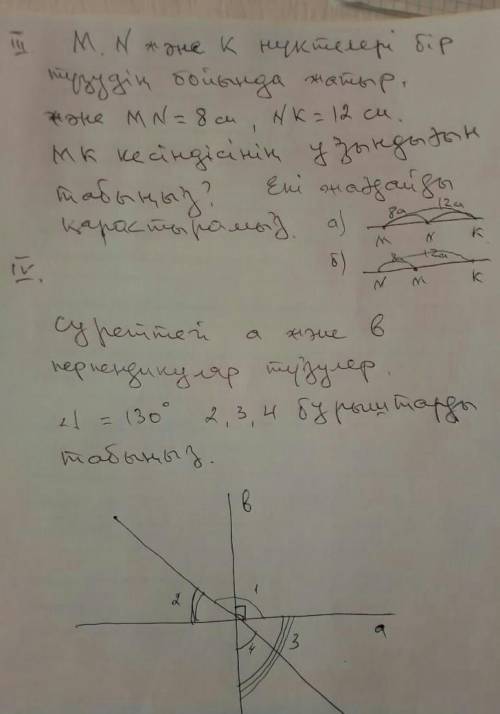 III M. N және K нүктелері бір
түзудің бойында жатыр.
және MN = 8 см, NK = 12 см.
MK кесіндісінің ұзындығын
табыңыз? Екі жағдайды
қарастырамыз. а) 8см 12см
M N K
б) 8см 12см
N M K
IV.
Суреттей а және в
перпендикуляр түзулер.
∠1 = 130° 2, 3, 4 бұрыштарды
табыңыз.
в
2 1
4 3 а